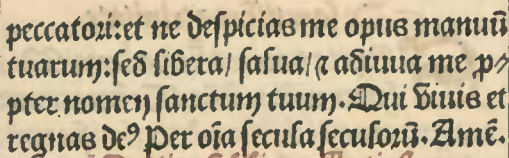 peccatori: et ne despicias me opus manuū
tuarum: sed libera/ salua/ ⁊ adiuua me p̱⸗
pter nomen sanctum tuum. Qui viuis et
regnas deꝰ Per oīa secula seculorū. Amē.